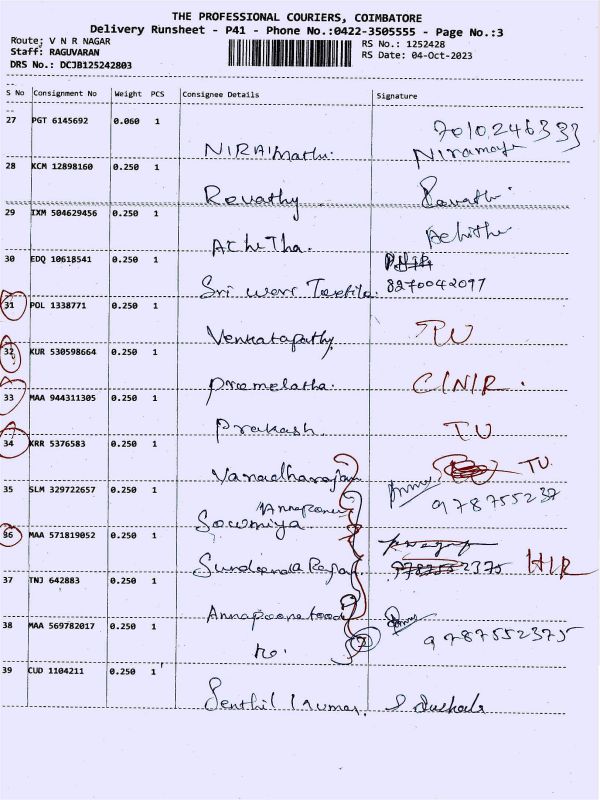 THE PROFESSIONAL COURIERS, COIMBATORE
Delivery Runsheet - P41 - Phone No.:0422-3505555 - Page No.:3
Route: V N R NAGAR
RS No.: 1252428
Staff: RAGUVARAN
RS Date: 04-Oct-2023
DRS No.: DCJB125242803
S No Consignment No Weight PCS Consignee Details Signature
27 PGT 6145692 0.060 1
7010246333
NIRAImathi. Niramaya
28 KCM 12898160 0.250 1
Revathy Revathi.
29 IXM 504629456 0.250 1
AchiTha. Achitha
30 EDQ 10618541 0.250 1
Sri Wari Textile. 8270042097
31 POL 1338771 0.250 1
Venkatapathy TU
32 KUR 530598664 0.250 1
Premelatha. C/N/R.
33 MAA 944311305 0.250 1
Prakash. TU
34 KRR 5376583 0.250 1
Varadharajan TU.
35 SLM 329722657 0.250 1
978755237
Annapoorna
Sowmiya
36 MAA 571819052 0.250 1
Sundara Rajan 9787552375 H/R
37 TNJ 642883 0.250 1
Annapoorna food
38 MAA 569782017 0.250 1
to. 2 9787552375
39 CUD 1104211 0.250 1
Senthil Kumar.